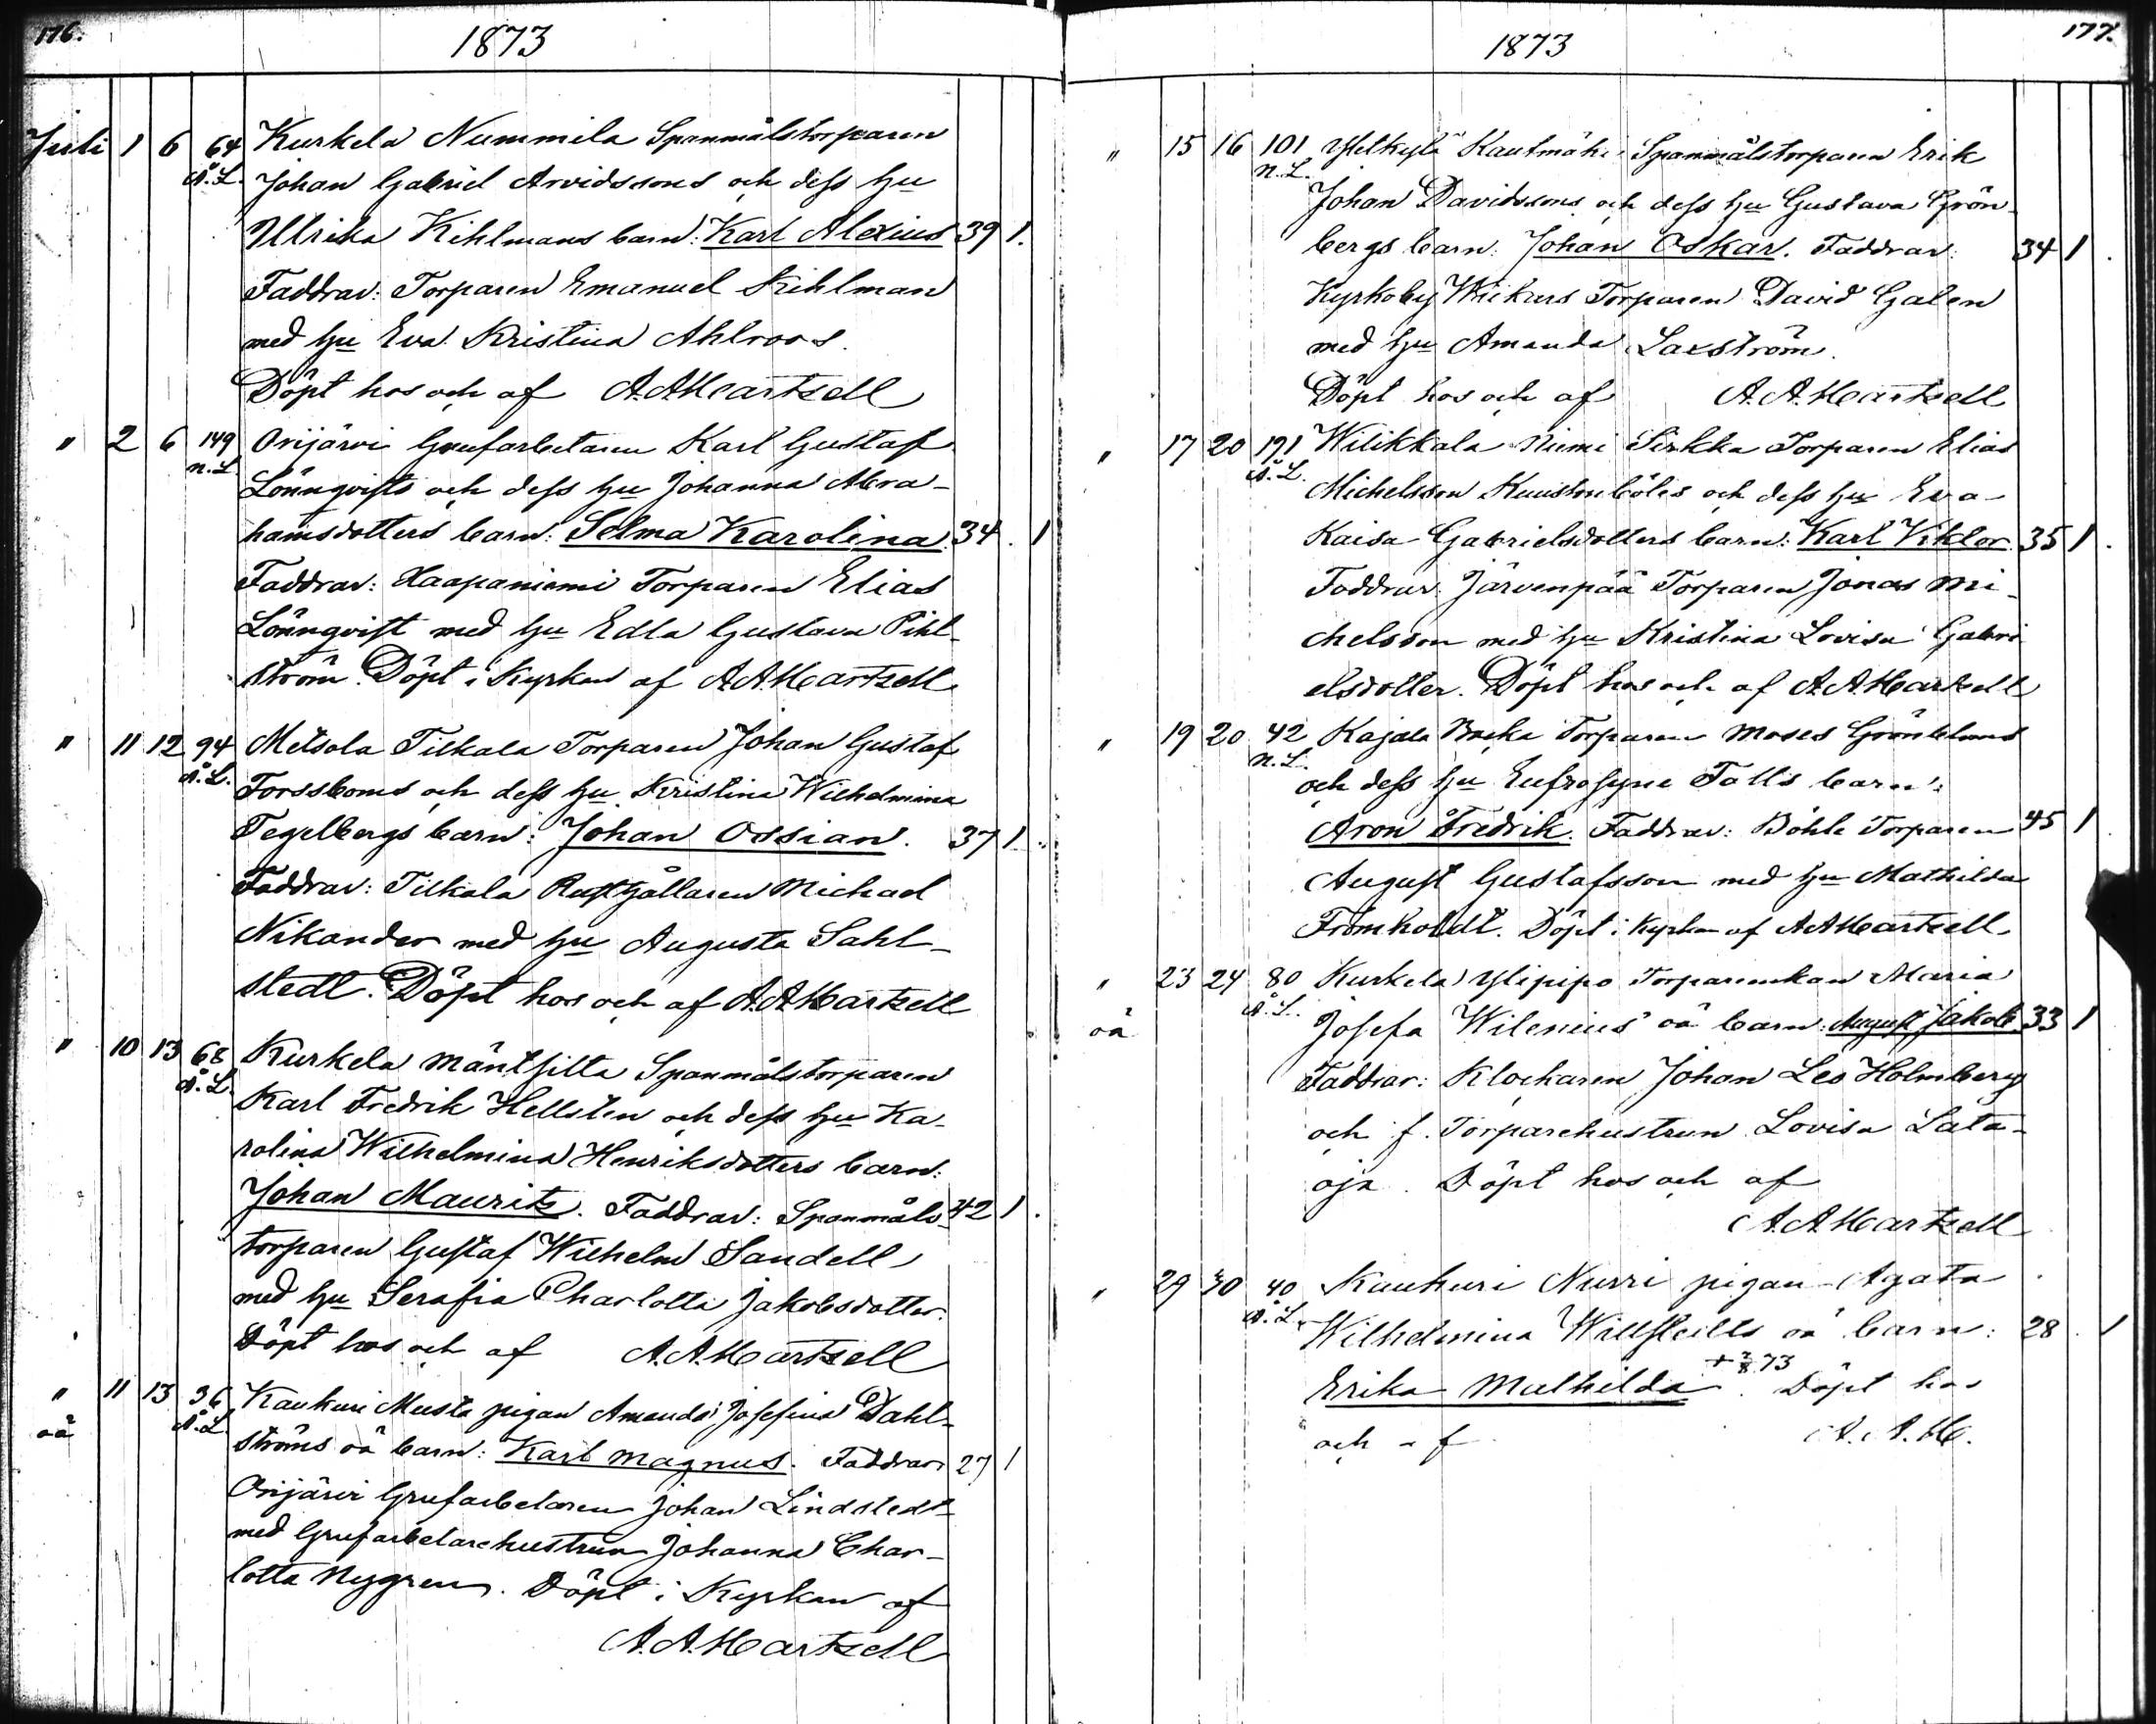 176.
1873
Juli 1 6 64 Kurkela Nummila Spanmålstorparen
Å.L. Johan Gabriel Arvidssons och dess hu
Ullrika Kihlmans barn: Karl Alexius 39 1.
Faddrar: Torparen Emanuel Kihlman
med hu Eva Kristina Ahlroos.
Döpt hos och af A.A.Hartzell
" 2 6 149 Orijärvi Grufarbetaren Karl Gustaf
n.L Lönnqvists och dess hu Johanna Abra-
hamsdotters barn: Selma Karolina 34 . 1
Faddrar: Haapaniemi Torparen Elias
Lönnqvist med hu Edla Gustava Pihl-
ström. Döpt i Kyrkan af A.A.Hartzell
" 11 12 94 Metsola Tilkala Torparen Johan Gustaf
Å.L. Forssboms och dess hu Kristina Wilhelmina
Tegelbergs barn: Johan Ossian. 37 1
Faddrar: Tilkala Rusthållaren Michael
Nikander med hu Augusta Sahl-
stedt. Döpt hos och af A.A.Hartzell
" 10 13 68 Kurkela Mäntsilta Spanmålstorparen
Å.L. Karl Fredrik Hellsten och dess hu Ka-
rolina Wilhelmina Henriksdotters barn:
Johan Mauritz. Faddrar: Spanmåls- 42 1.
torparen Gustaf Wilhelm Sandell
med hu Serafia Charlotta Jakobsdotter.
Döpt hos och af A.A.Hartzell
" 11 13 36 Kaukuri Musta pigan Amanda Josefina Dahl-
oä Å.L. ströms oä barn: Karl Magnus. Faddrar: 27 1
Orijärvi Grufarbetaren Johan Lindstedt
med Grufarbetarehustrun Johanna Char-
lotta Nygren. Döpt i Kyrkan af
A.A.Hartzell
177.
1873
" 15 16 101 Kautmäki Spanmålstorparen Erik
n.L. Johan Davidssons och dess hu Gustava Grön-
bergs barn: Johan Oskar. Faddrar: 34 1.
Kyrkoby Torparen David Galen
med hu Amanda Laxström.
Döpt hos och af A.A.Hartzell
" 17 20 171 Wilikkala Niemi Sirkka Torparen Elias
Å.L. Michelsson och dess hu Eva
Kaisa Gabrielsdotters barn: Karl Viktor. 35 1.
Faddrar: Järvenpää Torparen Jonas Mi-
chelsson med hu Kristina Lovisa Gabri
elsdotter. Döpt hos och af A.A.Hartzell
" 19 20 42 Kajala Torparen Moses Grönlunds
n.L. och dess hu Eufrosyne Falls barn:
Aron Fredrik. Faddrar: Böhle Torparen 45 1
August Gustafsson med hu Mathilda
Fromholdt. Döpt i Kyrkan af A.A.Hartzell.
" 23 24 80 Kurkela Ylipipo Torparenkan Maria
oä Å.L. Josefa Wilenius' oä barn: August Jakob 33 1
Faddrar: Klockaren Johan Leo Holmberg
och f. Torparehustrun Lovisa Lata-
oja. Döpt hos och af
A.A.Hartzell
" 29 30 40 Kaukuri Nurri pigan Agata
Å.L. Wilhelmina oä barn: 28 . 1
+ 2/8 73
Erika Mathilda. Döpt hos
och af A.A.H.